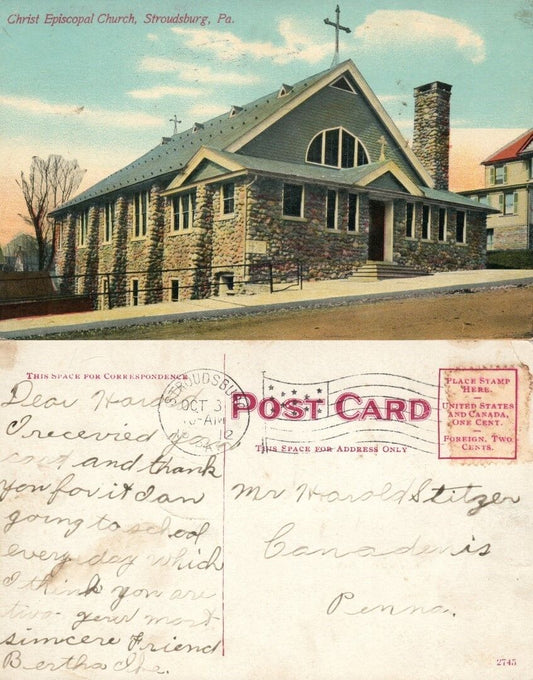 Christ Episcopal Church, Stroudsburg, Pa.
THIS SPACE FOR CORRESPONDENCE
POST CARD
THIS SPACE FOR ADDRESS ONLY
PLACE STAMP
HERE.
UNITED STATES
AND CANADA,
ONE CENT.
FOREIGN, TWO
CENTS.
STROUDSBU
OCT 3
AM
12
PA
Dear Harold
I recevied your
card and thank
you for it I am
going to school
every day which
I think you are
two your most
simcere Friend
Bertha
Mr Harold Stitzer
Canadenis
Penna.
2745